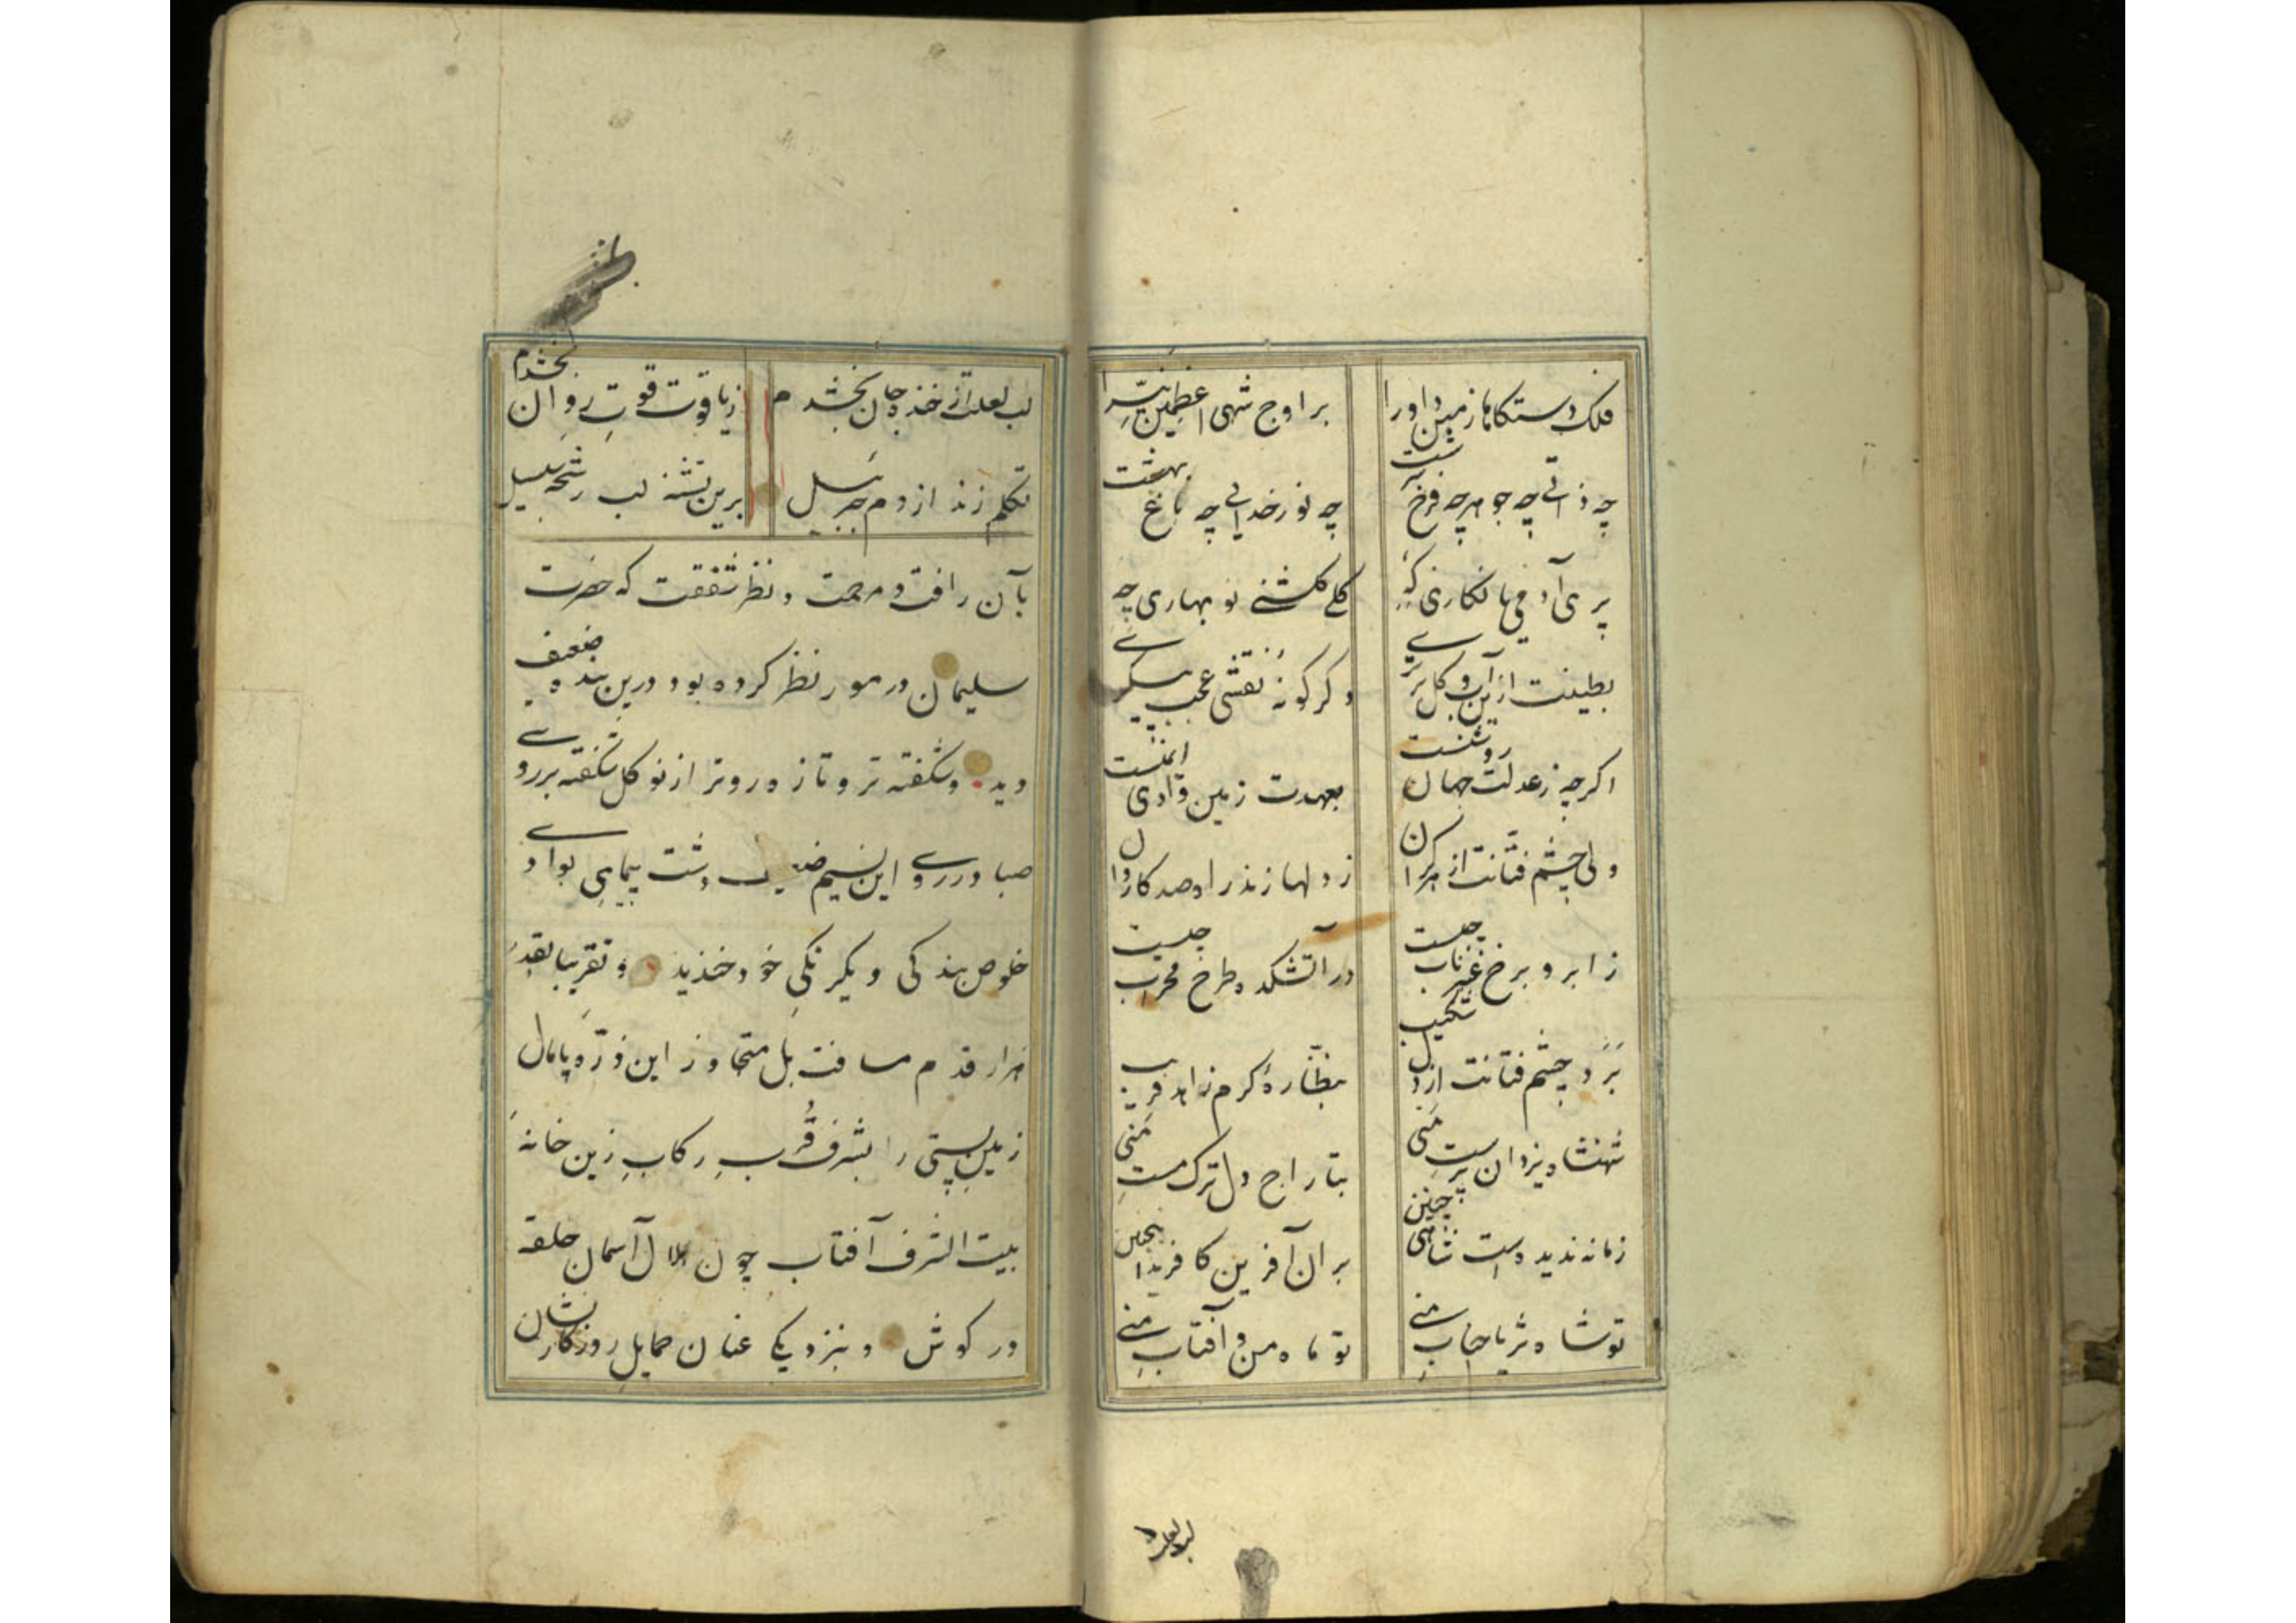 فلک دستکاها زمین داورا
بر اوج شهی اعظمین نیّرا
چه ذاتی چه جوهر چه فرخ سرشت
چه نور خدایی چه باغ بهشت
پری آدمی یا نکاری که
کل کلشنی نو بهاری چه
بطینت ازین آب و کل برتری
دکر کونه نقشی عجب پیکری
اکرچه زعدلت جهان روشنست
بعهدت زمین وادی ایمنست
ولی چشم فتانت از هر کران
زدلها زند راه صد کاروان
زابرو بر رخ چیست
در آتشکده طرح محراب چیست
برد چشم فتانت از دل شکیب
بنظّارهٔ کرم زاهد فریب
شهنشاه یزدان پرست منی
بتاراج دل ترک مست منی
زمانه ندیدست شاهی چنین
بر آن آفرین کافرید اینچنین
تو شاه ثریا جناب منی
تو ماه من و آفتاب منی
لب لعلت
لب لعلت از خنده جان بخشدم
زیاقوت قوت روان بخشدم
تکلم زند از دم جبرئیل
برین تشنه لب رشحه سلسبیل
بآن رافت و مرحمت و نظر شفقت که حضرت
سلیمان در مور نظر کرده بود درین بنده ضعیف
دید و شکفته تر و تازه روتر از نو کل شکفته بر روی
صبا در روی این نسیم ضعیف دشت پیمای بوادی
خلوص بندکی و یکرنکی خود خندید و تقریبا بقدر
هزار قدم مسافت بل متجاوز این ذرّه پامال
زمین پستی را بشرف قُرب رکاب زین خانهٔ
بیت الشرف آفتاب چون هلال آسمان حلقه
در کوش و بنزدیکی عنان حمایل روزکار نشان